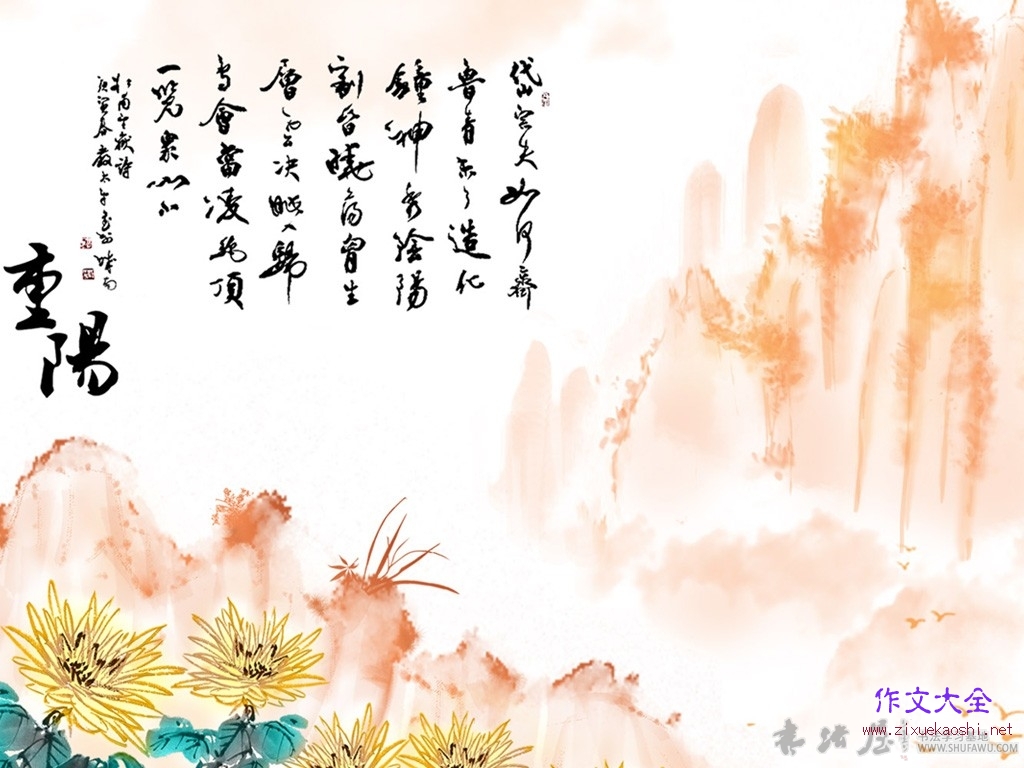 岱宗夫如何齊
魯青未了造化
鍾神秀陰陽
割昏曉蕩胸生
層雲決眥入歸
鳥會當凌絕頂
一覽衆山小
杜甫望嶽詩
重陽
作文大全
www.zixuekaoshi.net
书法学习基地
WWW.SHUFAWU.COM